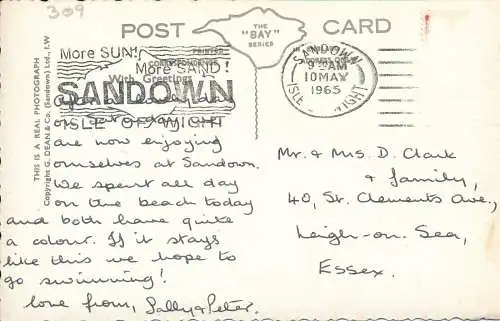 309
POST CARD
THE
"BAY"
SERIES
PRINTED
CORRESPONDENCE
ADDRESS ONLY
More SUN!
More SAND!
With Greetings
SANDOWN
ISLE OF WIGHT
SANDOWN
9 AM
10 MAY
1965
ISLE OF WIGHT
THIS IS A REAL PHOTOGRAPH
Copyright G. DEAN & Co. (Sandown) Ltd., I.W
day
on Saturday
are now enjoying
ourselves at Sandown.
We spent all day
on the beach today
and both have quite
a colour. If it stays
like this we hope to
go swimming!
love from, Sally & Peter.
Mr. & Mrs D. Clark
& family,
40, St. Clements Ave.,
Leigh-on-Sea,
Essex.